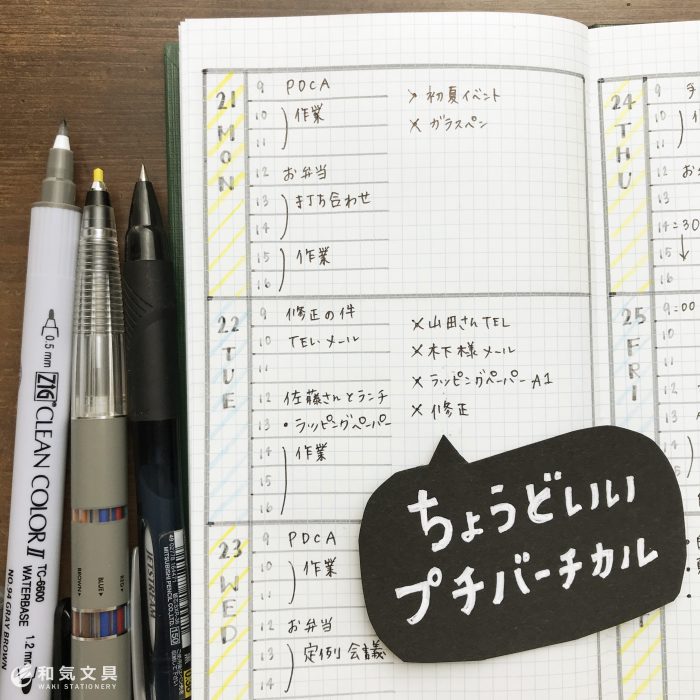 21 MON
9 PDCA
10 作業
11
12 お弁当
13 打ち合わせ
14
15 作業
16
> 初夏イベント
× ガラスペン
22 TUE
9 修正の件
10 TEL・メール
11
12 佐藤さんとランチ
13 • ラッピングペーパー
14 作業
15
16
× 山田さんTEL
× 木下様メール
× ラッピングペーパー A1
× 修正
23 WED
9 PDCA
10 作業
11
12 お弁当
13 定例会議
14
24 THU
9
10
11
12 お
13
14=30
15
16
25 FRI
9:00
10
11
12
13
14
ちょうどいい
プチバーチカル
0.5 mm ZIG CLEAN COLOR II
TC-6600
WATERBASE 1.2 mm
NO.94 GRAY BROWN
BROWN
BLUE
RED
JETSTREAM
MITSUBISHI PENCIL CO.,LTD.
150
和気文具
WAKI STATIONERY